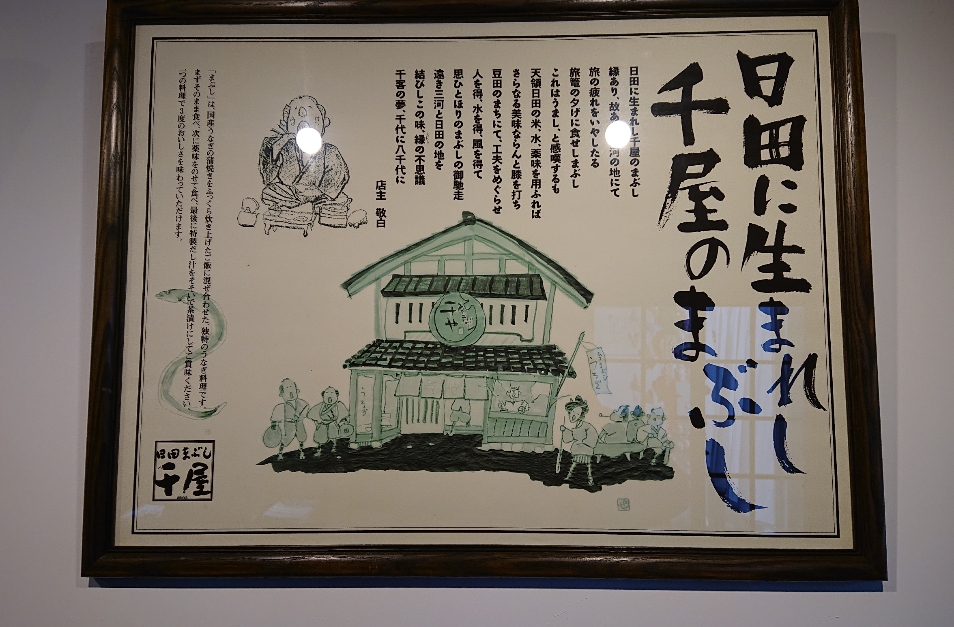 日田に生まれし
千屋のまぶし
日田に生まれし千屋のまぶし
縁あり、故あ 河の地にて
旅の疲れをいやしたる
旅篭の夕げに食せしまぶし
これはうまし、と感嘆するも
天領日田の米、水、薬味を用ふれば
さらなる美味ならんと膝を打ち
豆田のまちにて、工夫をめぐらせ
人を得、水を得、風を得て
思ひとほりのまぶしの御馳走
遠き三河と日田の地を
結びしこの味、縁の不思議
千客の夢、千代に八千代に
店主 敬白
「まぶし」は、国産うなぎの蒲焼きをふっくら炊き上げたご飯に混ぜ合わせた、独特のうなぎ料理です。
まずそのまま食べ、次に薬味をのせて食べ、最後に特製だし汁をそそいで茶漬けにしてご賞味ください。
一つの料理で3度のおいしさを味わっていただけます。
日田まぶし
千屋